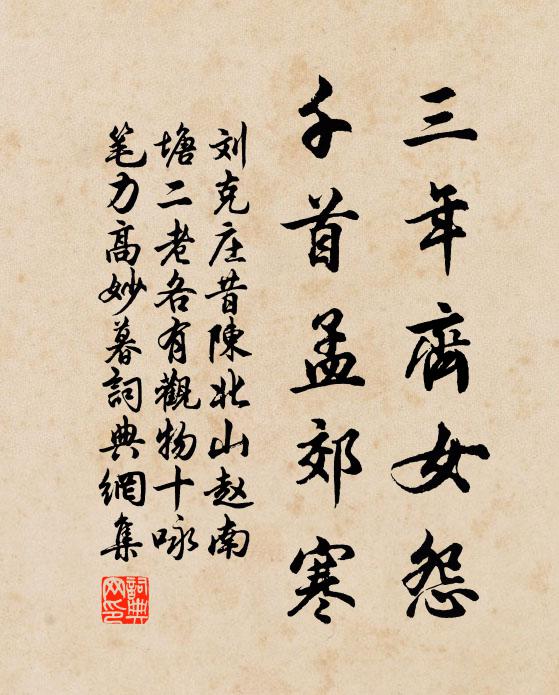 三年齊女怨
千首孟郊寒
刘克庄昔陳北山赵南
塘二老各有觀物十咏
笔力高妙暮詞典網集
詞典
网印